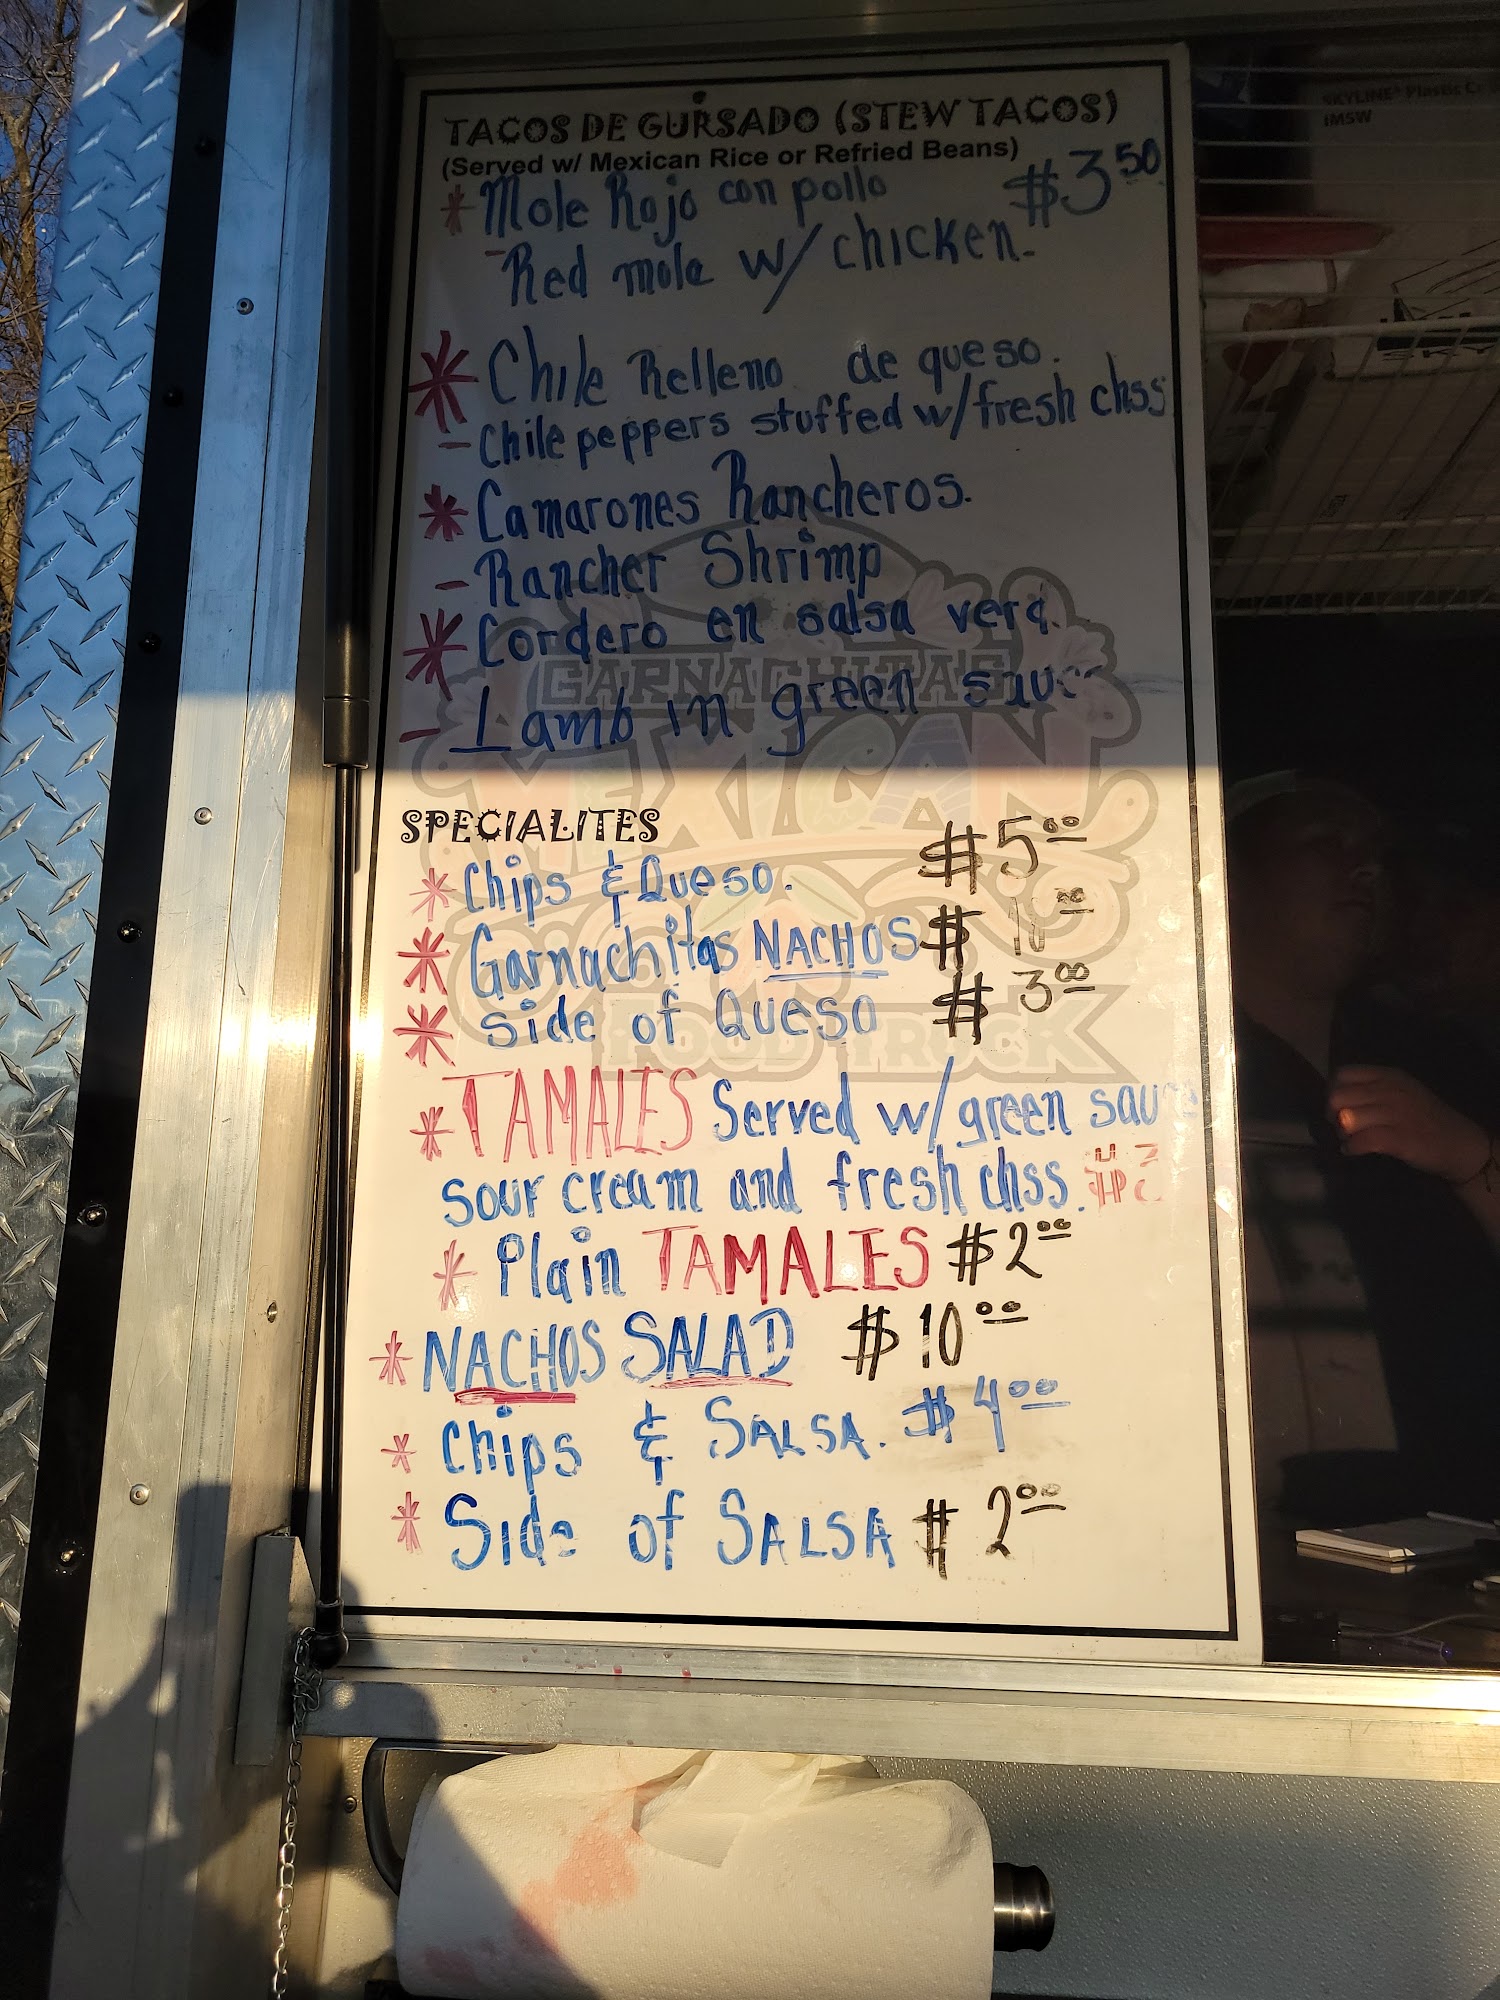 TACOS DE GUISADO (STEW TACOS)
(Served w/ Mexican Rice or Refried Beans)
* Mole Rojo con pollo $3 50
- Red mole w/ chicken.
* Chile Relleno de queso.
- Chile peppers stuffed w/ fresh chss
* Camarones Rancheros.
- Rancher Shrimp
* Cordero en salsa verd
- Lamb in green sauc
GARNACHITAS
MEXICAN
FOOD TRUCK
SPECIALITES
* Chips & Queso. $5 00
* Garnachitas NACHOS $ 10 00
* Side of Queso $ 3 00
* TAMALES Served w/ green sauce
sour cream and fresh chss.
* Plain TAMALES $2 00
* NACHOS SALAD $10 00
* Chips & SALSA. $4 00
* Side of SALSA $2 00
SKYLINE® Plastic
IMSW
SKY